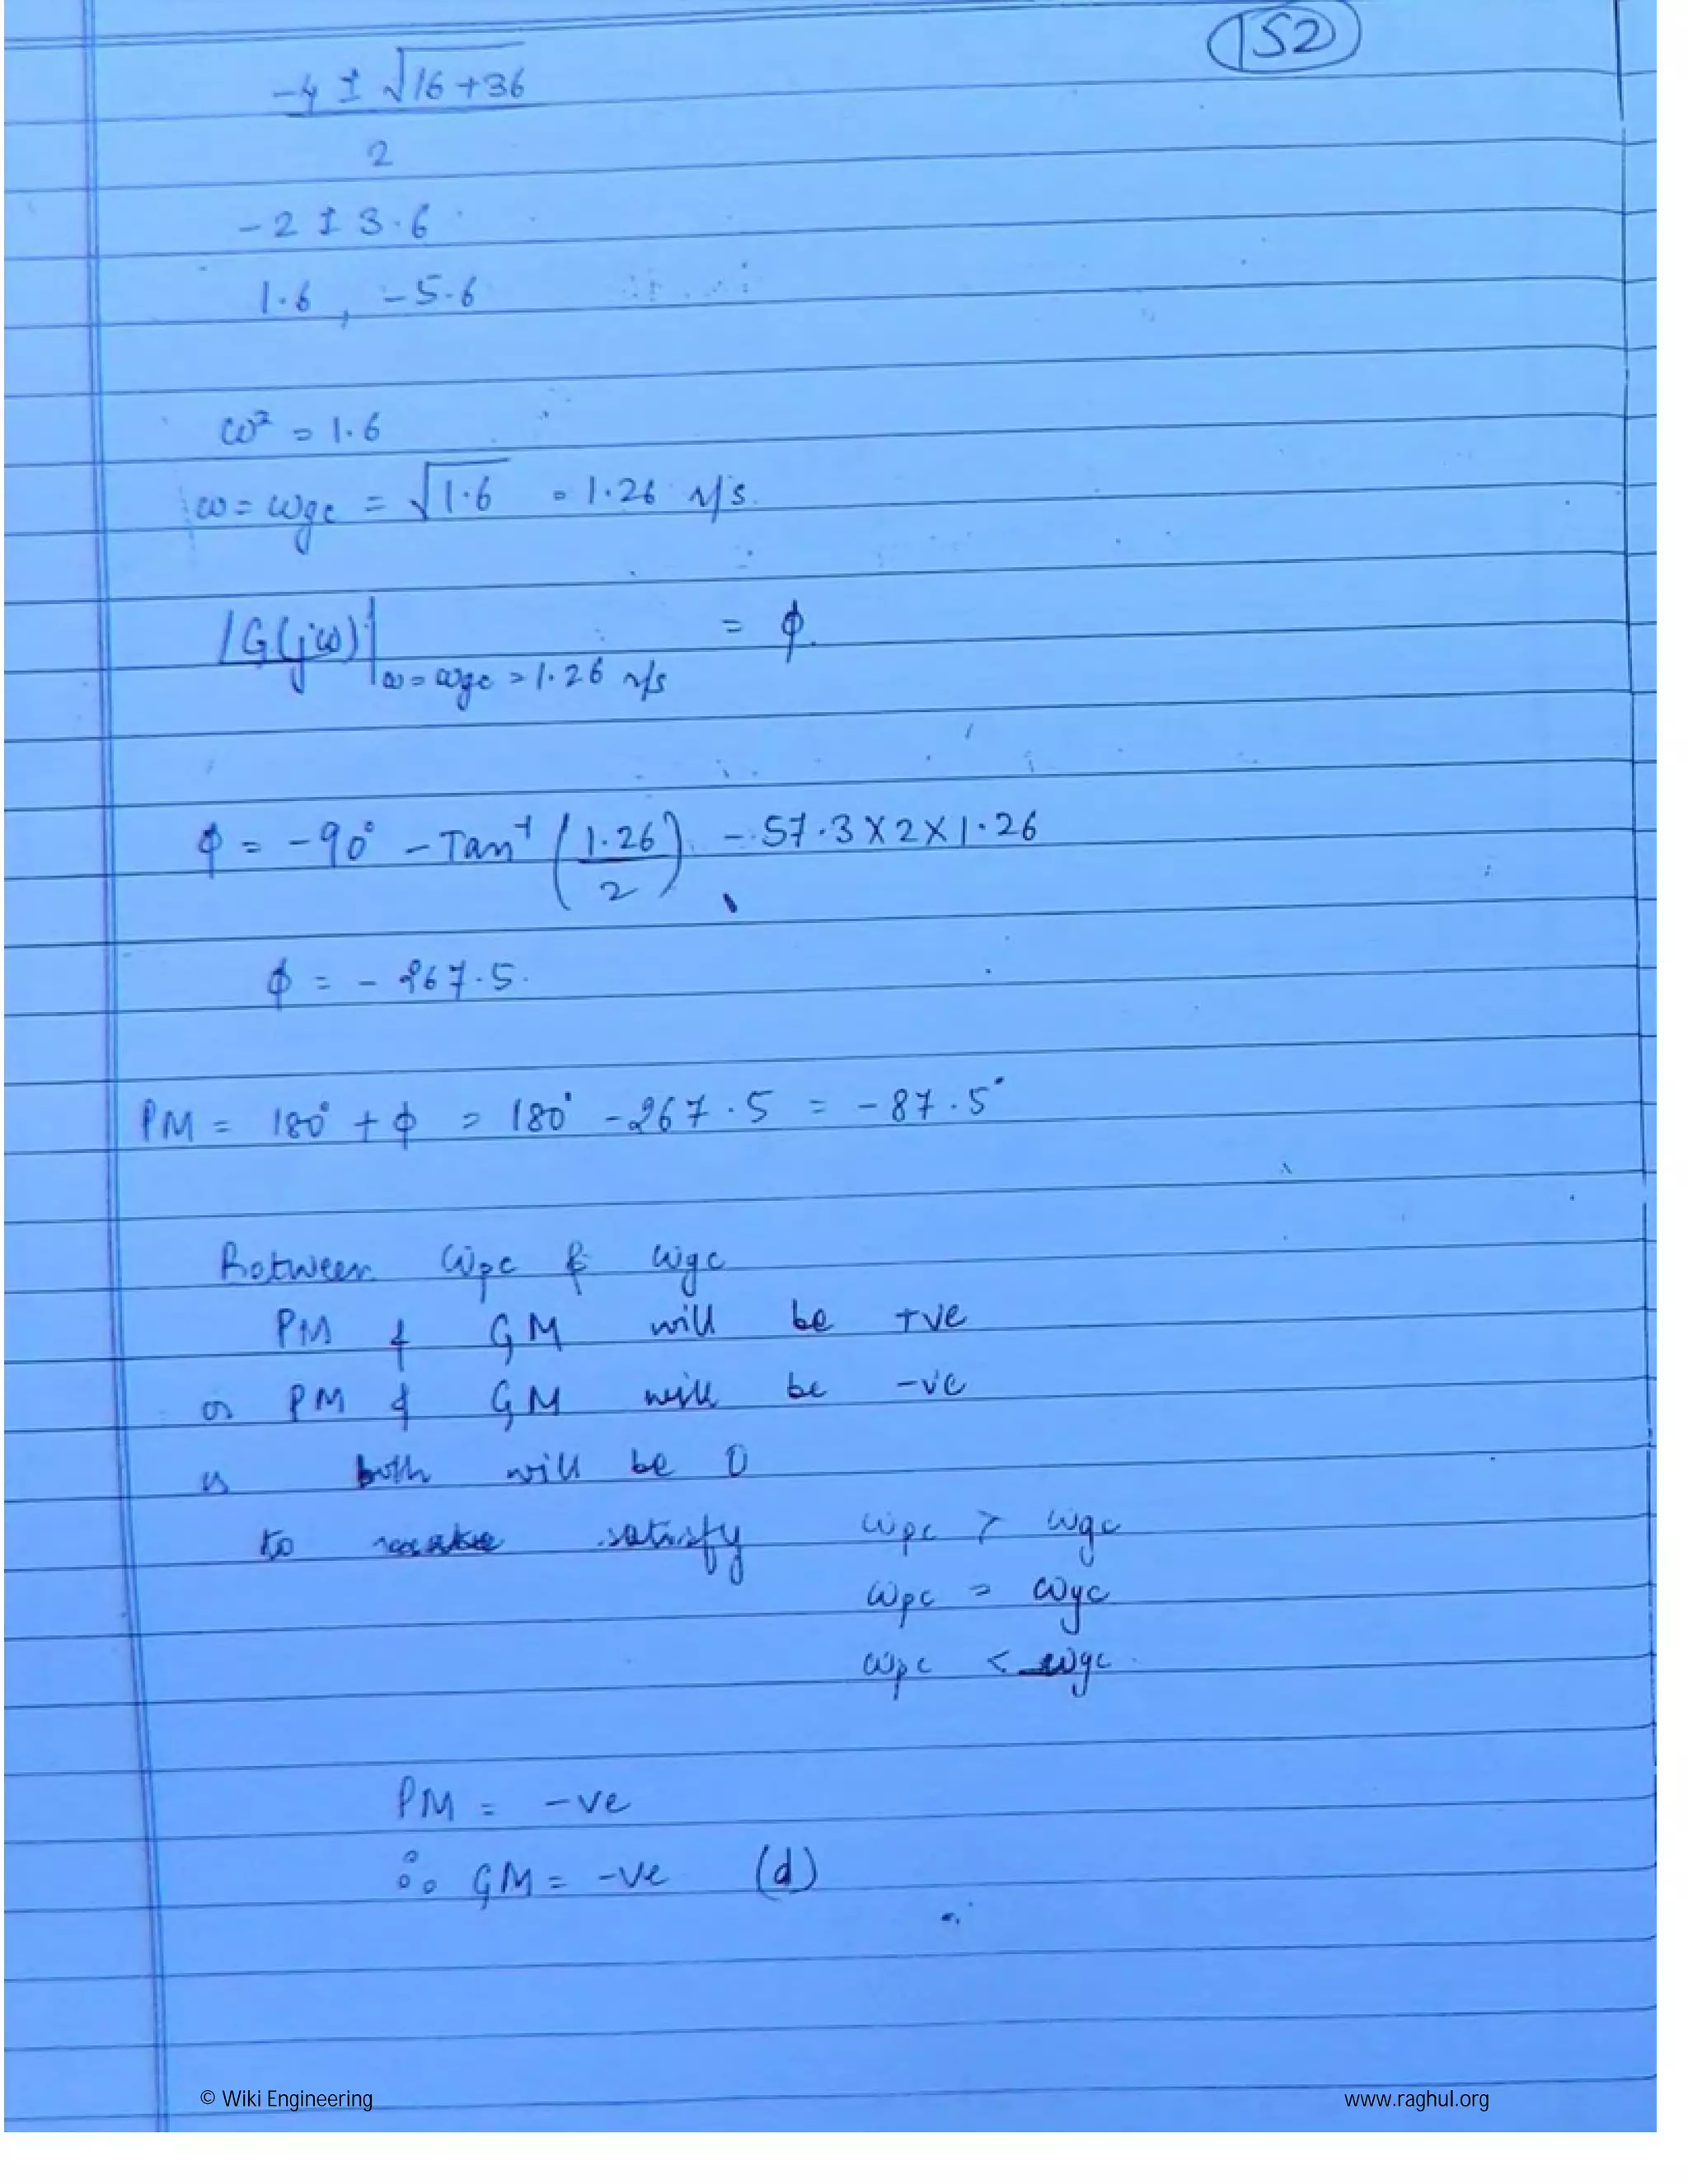 152
-4 ± √16+36
2
-2 ± 3.6
1.6 , -5.6
ω² = 1.6
ω = ωgc = √1.6 = 1.26 r/s.
∠G(jω)|ω=ωgc = 1.26 r/s = ϕ.
ϕ = -90° - Tan⁻¹ (1.26/2) - 57.3 X 2 X 1.26
ϕ = - 267.5.
PM = 180° + ϕ = 180° - 267.5 = -87.5°
Between ωpc & ωgc
PM & GM will be +ve
or PM & GM will be -ve
or both will be 0
to satisfy ωpc > ωgc
ωpc = ωgc
ωpc < ωgc.
PM = -ve
∴ GM = -ve (d)
© Wiki Engineering www.raghul.org